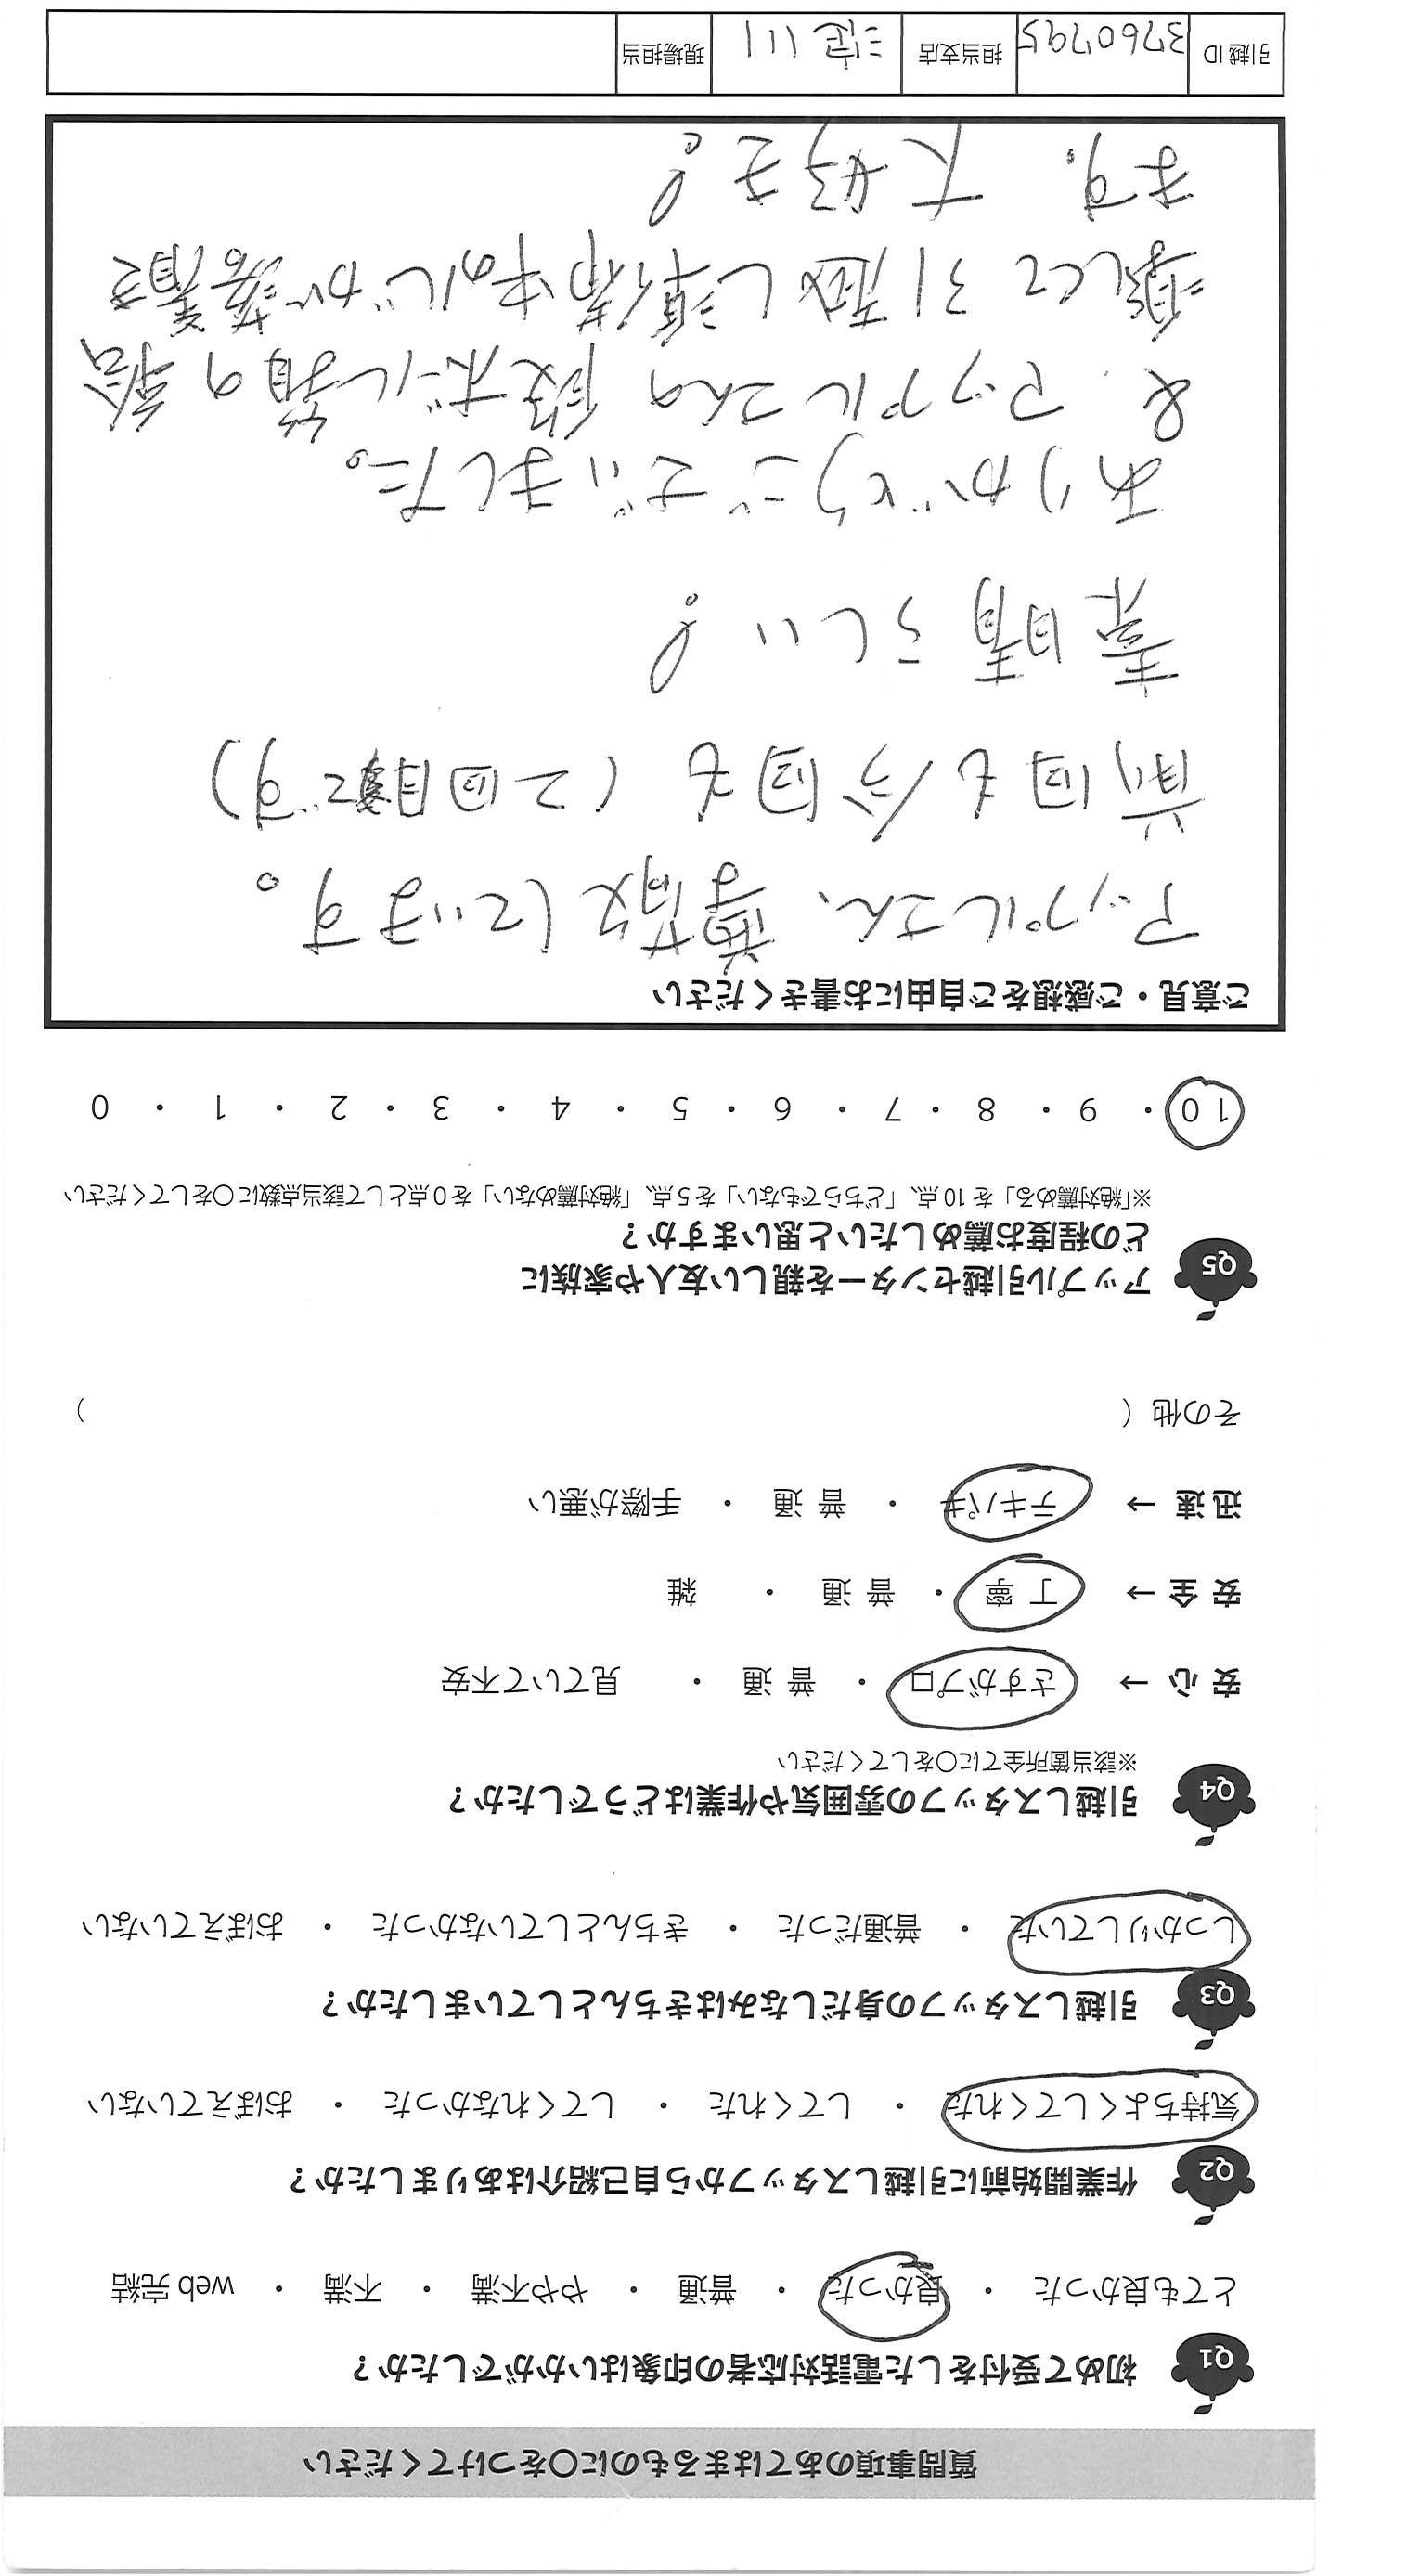 質問事項のあてはまるものに〇をつけてください
Q1 初めて受付をした電話対応者の印象はいかがでしたか？
とても良かった ・ 良かった ・ 普通 ・ やや不満 ・ 不満 ・ web 完結
Q2 作業開始前に引越しスタッフから自己紹介はありましたか？
気持ちよくしてくれた ・ してくれた ・ してくれなかった ・ おぼえていない
Q3 引越しスタッフの身だしなみはきちんとしていましたか？
しっかりしていた ・ 普通だった ・ きちんとしていなかった ・ おぼえていない
Q4 引越しスタッフの雰囲気や作業はどうでしたか？
※該当箇所全てに〇をしてください
安 心 → さすがプロ ・ 普 通 ・ 見ていて不安
安 全 → 丁 寧 ・ 普 通 ・ 雑
迅 速 → テキパキ ・ 普 通 ・ 手際が悪い
その他（ ）
Q5 アップル引越センターを親しい友人や家族に
どの程度お薦めしたいと思いますか？
※「絶対薦める」を 10 点、「どちらでもない」を 5 点、「絶対薦めない」を 0 点として該当点数に〇をしてください
10 ・ 9 ・ 8 ・ 7 ・ 6 ・ 5 ・ 4 ・ 3 ・ 2 ・ 1 ・ 0
ご意見・ご感想をご自由にお書きください
アップルさん、尊敬しています。
前回も今回も (2回目です)
素晴らしい!
ありがとうございました。
& アップルさんの段ボール箱の絵
新婦 引越し
ます。大好き!
引越 ID 37607795 担当支店 淀川 現場担当